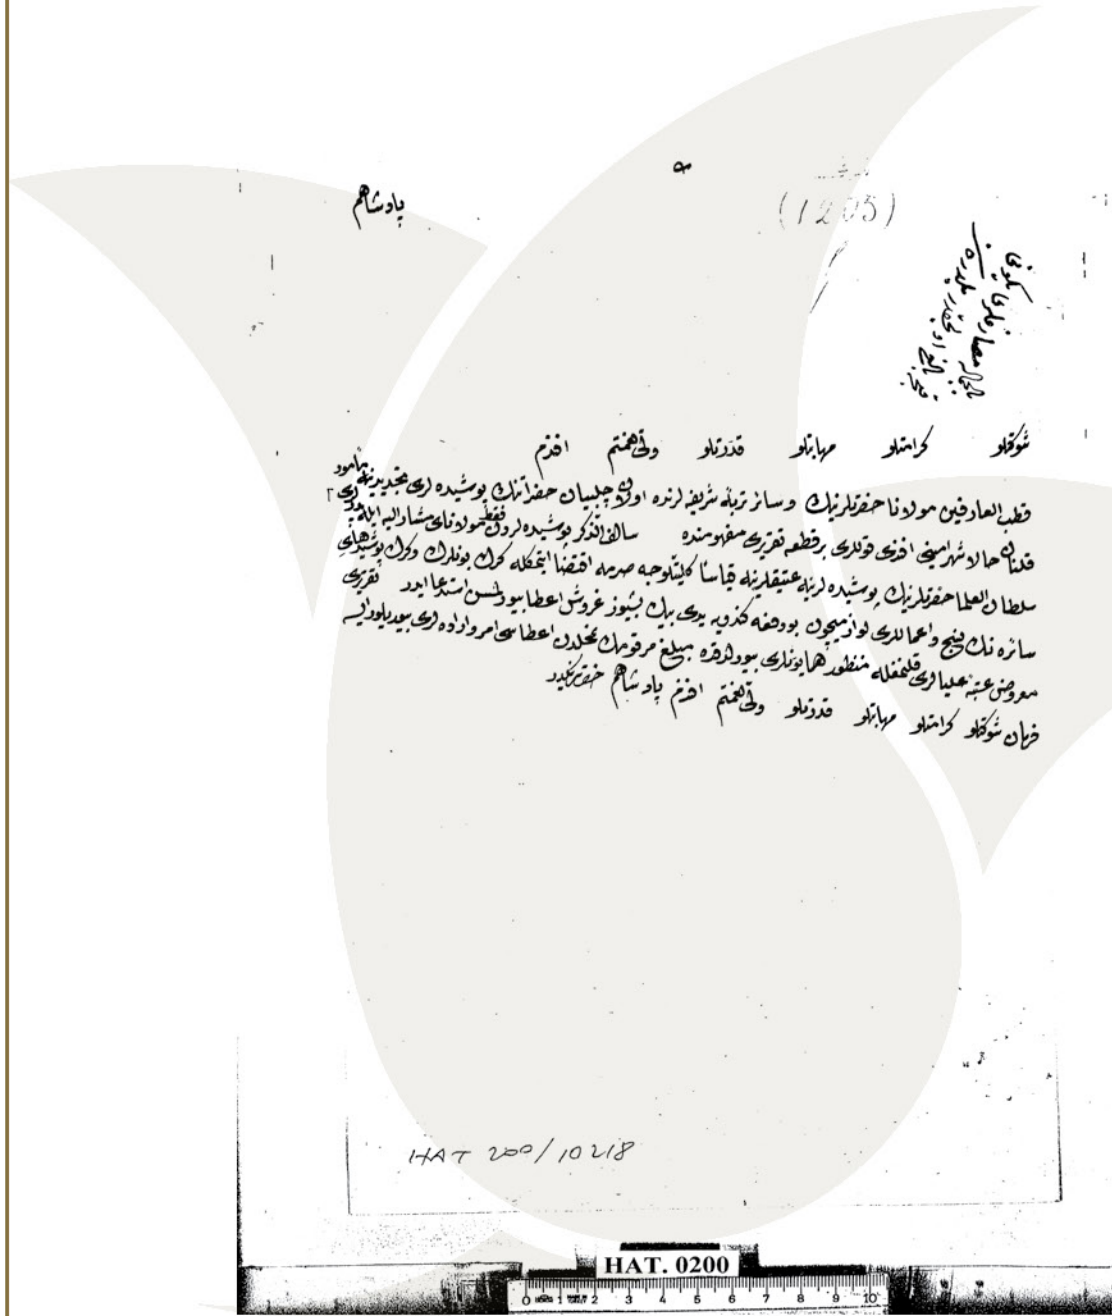 پادشاهم
(1205)
شوكتلو كرامتلو مهابتلو قدرتلو ولی نعمتم افندم
قطب العارفین مولانا حضرتلرینك وسائر تربهٔ شریفه لرنده اولان چلبیان حضراتنك پوشیده لری تجدیدینه مأمور
قلنان حالا شهر امینی افندی قوللری بر قطعه تقریری مفهومنده سالف الذكر پوشیده لردن فقط مولانای مشار الیه ایله
سلطان العلما حضرتلرینك پوشیده لرینه عتیقلرینه قیاسا كلیتلوجه صرمه اقتضا ایتمكله كرك بونلرك وكرك پوشیدهای
سائره نك نسج واعماللری لوازمیچون بو دفعه كندویه یدی بیك بشیوز غروش اعطا بیورلسن استدعا ایدر تقریری
معروض عتبهٔ علیالری قلنمغله منظور همایونلری بیورلدقده مبلغ مرقومك محلندن اعطاسی امر واراده لری بیوریلور ایسه
فرمان شوكتلو كرامتلو مهابتلو قدرتلو ولی نعمتم افندم پادشاهم حضرتلرینكدر
HAT 200/10218
HAT. 0200
0 1 2 3 4 5 6 7 8 9 10